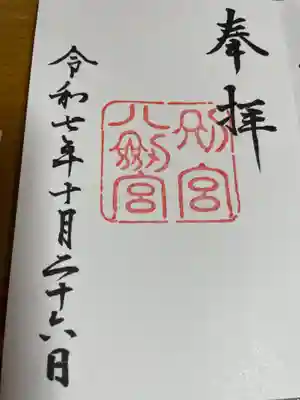 奉拝
八剱宮
別宮
令和七年十月二十六日